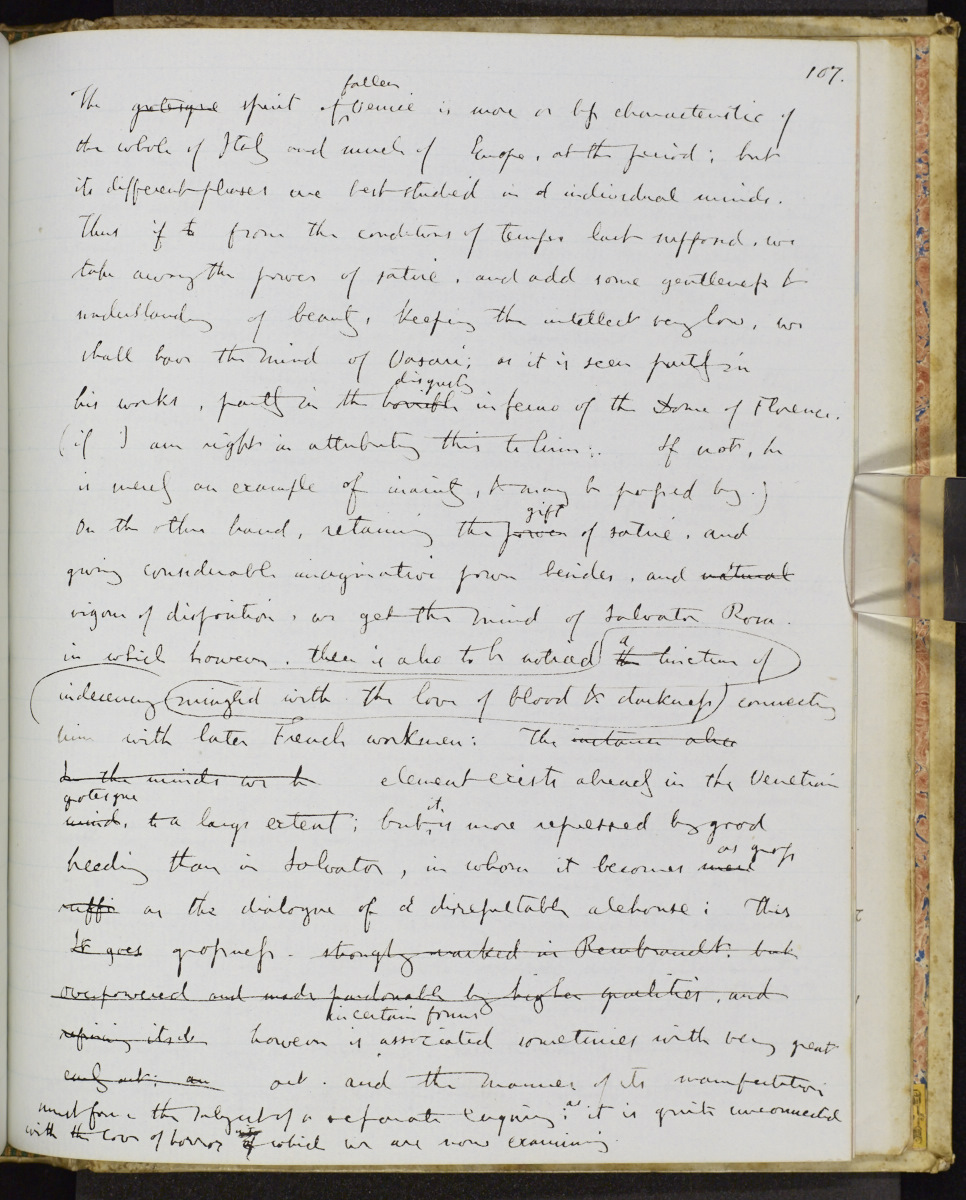 107.
fallen
The grotesque spirit of Venice is more or less characteristic of
the whole of Italy and much of Europe, at the period; but
its different phases are best studied in individual minds.
Thus if to from the conditions of temper last supposed, we
take away the power of satire, and add some gentleness &
understanding of beauty, keeping the intellect very low, we
shall have the mind of Vasari; as it is seen partly in
disgusting
his works, partly in the horrible inferno of the Dome of Florence.
(if I am right in attributing this to him: If not, he
is merely an example of inanity, & may be passed by.)
gift
On the other hand, retaining the power of satire, and
giving considerable imaginative power besides, and natural
vigour of disposition, we get the mind of Salvator Rosa.
in which however, there is also to be noticed a the tincture of
indecency mingled with the love of blood & darkness connecting
him with later French workmen: The instance also
In the minds we h element exists already in the Venetian
grotesque
mind, to a large extent; but it is more repressed by good
as gross
breeding than in Salvator, in whom it becomes mere
ruffi as the dialogue of a disreputable alehouse: This
It goes grossness strongly marked in Rembrandt, but
overpowered and made pardonable by higher qualities, and
in certain forms
refining itself however is associated sometimes with very great
early art; an art. and the manner of its manifestation
must form the subject of a separate enquiry: as it is quite unconnected
with the love of horror which we are now examining.